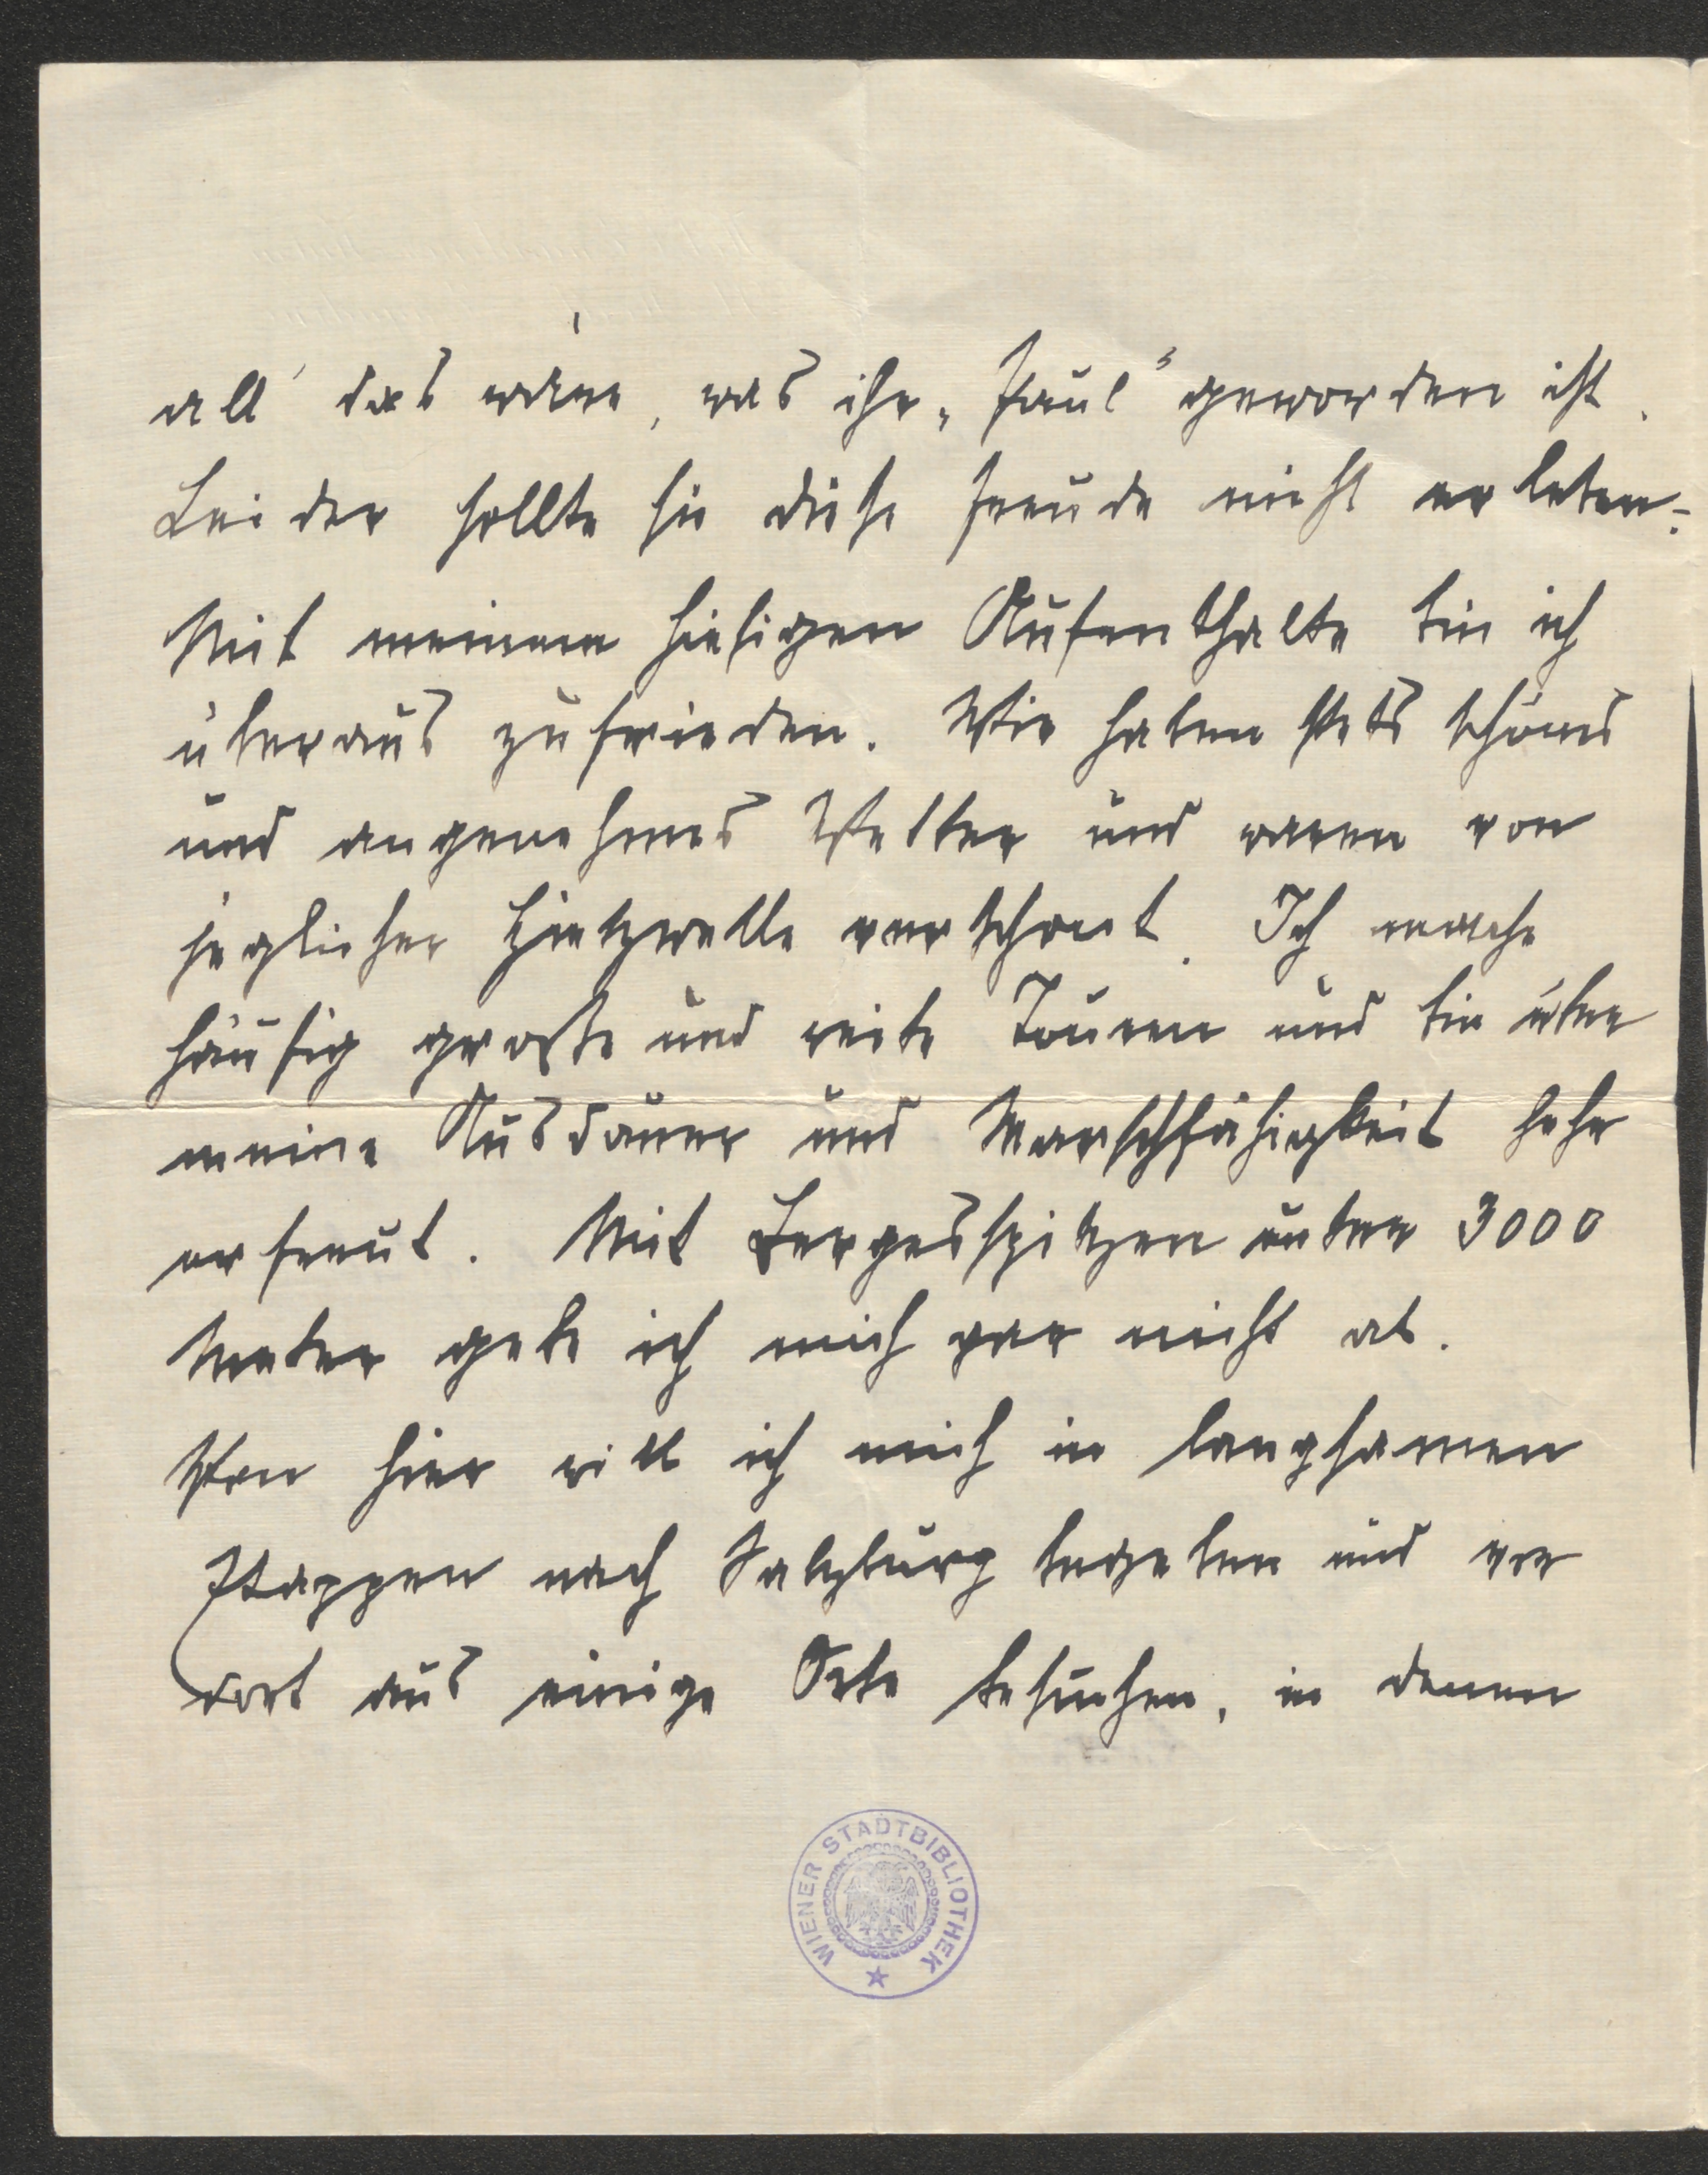 all' das wäre, was ihr „Paul“ geworden ist.
Leider sollte sie diese Freude nicht erleben.
Mit meinem hiesigen Aufenthalte bin ich
überaus zufrieden. Wir haben stets schönes
und angenehmes Wetter und waren von
jeglicher Hitzwelle verschont. Ich mache
häufig große und weite Touren und bin über
meine Ausdauer und Marschfähigkeit sehr
erfreut. Mit Bergesspitzen unter 3000
Meter gebe ich mich gar nicht ab.
Von hier will ich mich in langsamen
Etappen nach Salzburg begeben und von
dort aus einige Orte besuchen, in denen
WIENER STADTBIBLIOTHEK